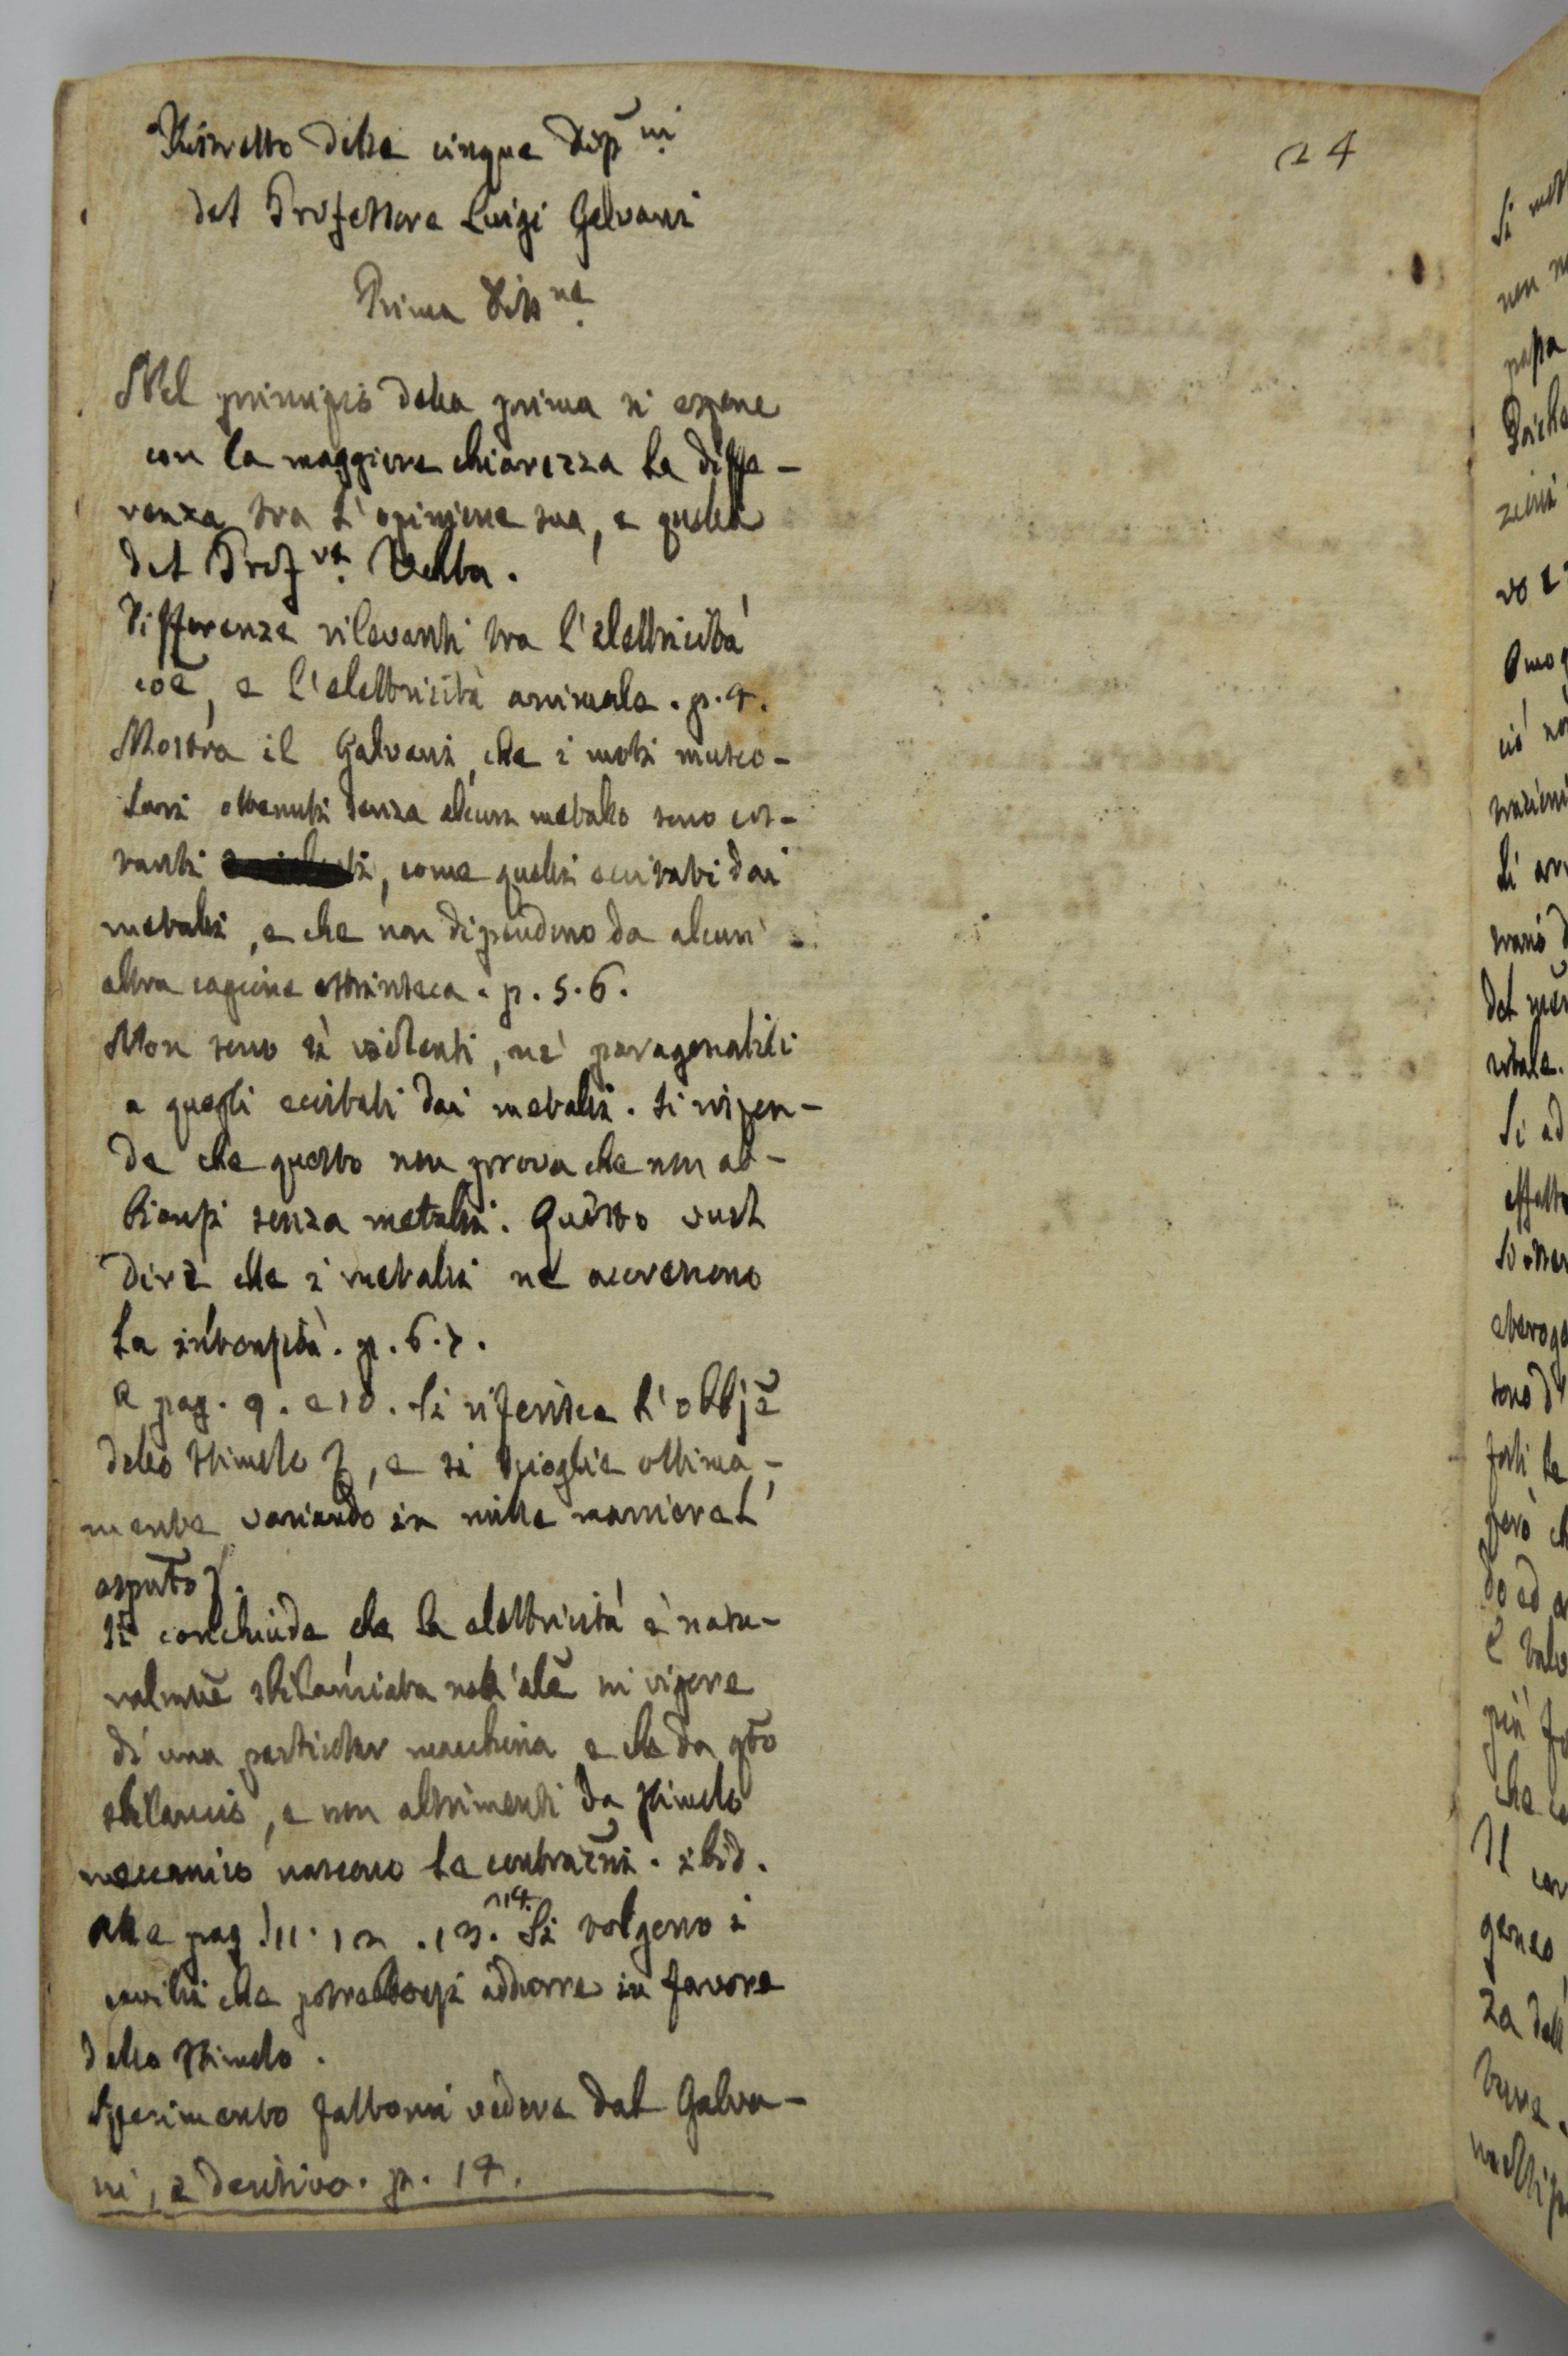 Ristretto delle cinque Diss.ni
24
del Professore Luigi Galvani
Prima Diss.ne
Nel principio della prima si espone
con la maggiore chiarezza la diffe-
renza tra l'opinione sua, e quella
del Prof.re Volta.
Differenze rilevanti tra l'elettricità
coē, e l'elettricità animale. p. 4.
Mostra il Galvani, che i moti musco-
lari ottenuti senza alcun metallo sono cos-
tanti, come quelli eccitati dai
metalli, e che non dipendono da alcun'
altra cagione estrinseca. p. 5. 6.
Non sono sì violenti, nè paragonabili
a quegli eccitati dai metalli. Si rispon-
de che questo non prova che non ab-
biansi senza metalli. Questo vuol
dire che i metalli ne accrescono
la intensità. p. 6. 7.
A pag. 9. e 10. Si riferisce l'obbjē
dello stimolo, e si scioglie ottima-
mente variando in mille maniere l'
Si conchiude che la elettricità è natu-
ralmte sbilanciata nell'ale in vigore
di una particolar macchina e che da qto
sbilancio, e non altrimenti da stimolo
meccanico nascono le contrazni. ibid.
Alla pag. 11. 12. 13. 14. Si volgono i
cavilli che potrebbonsi addurre in favore
dello stimolo.
Sperimento fattomi vedere dal Galva-
ni, e decisivo. p. 14.